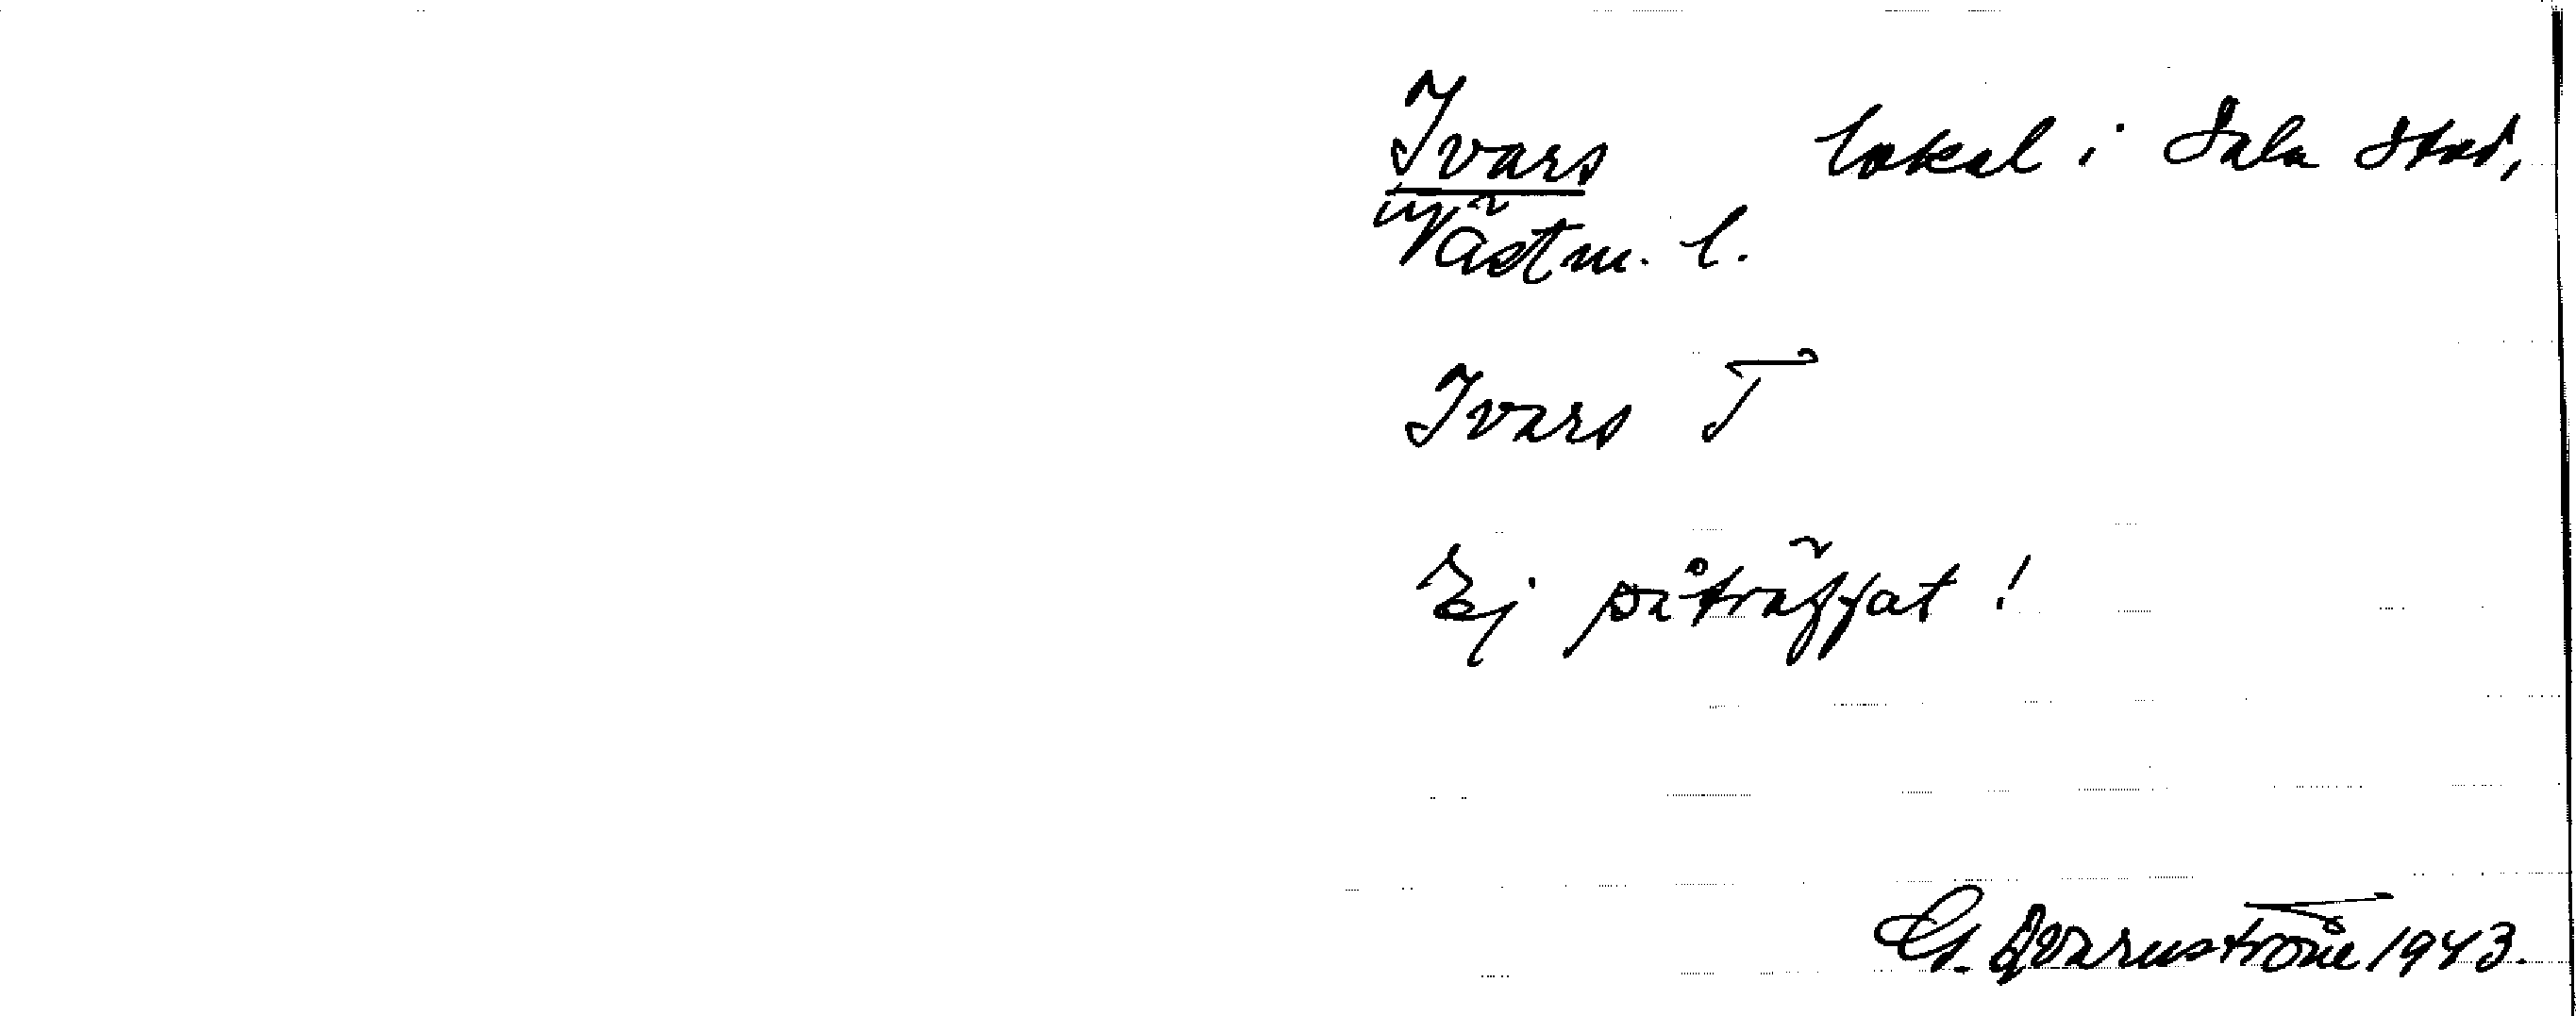 Ivars lokal i Sala stad,
Västm. l.
Ivars T
Ej påträffat!
G. Qvarnström 1943.